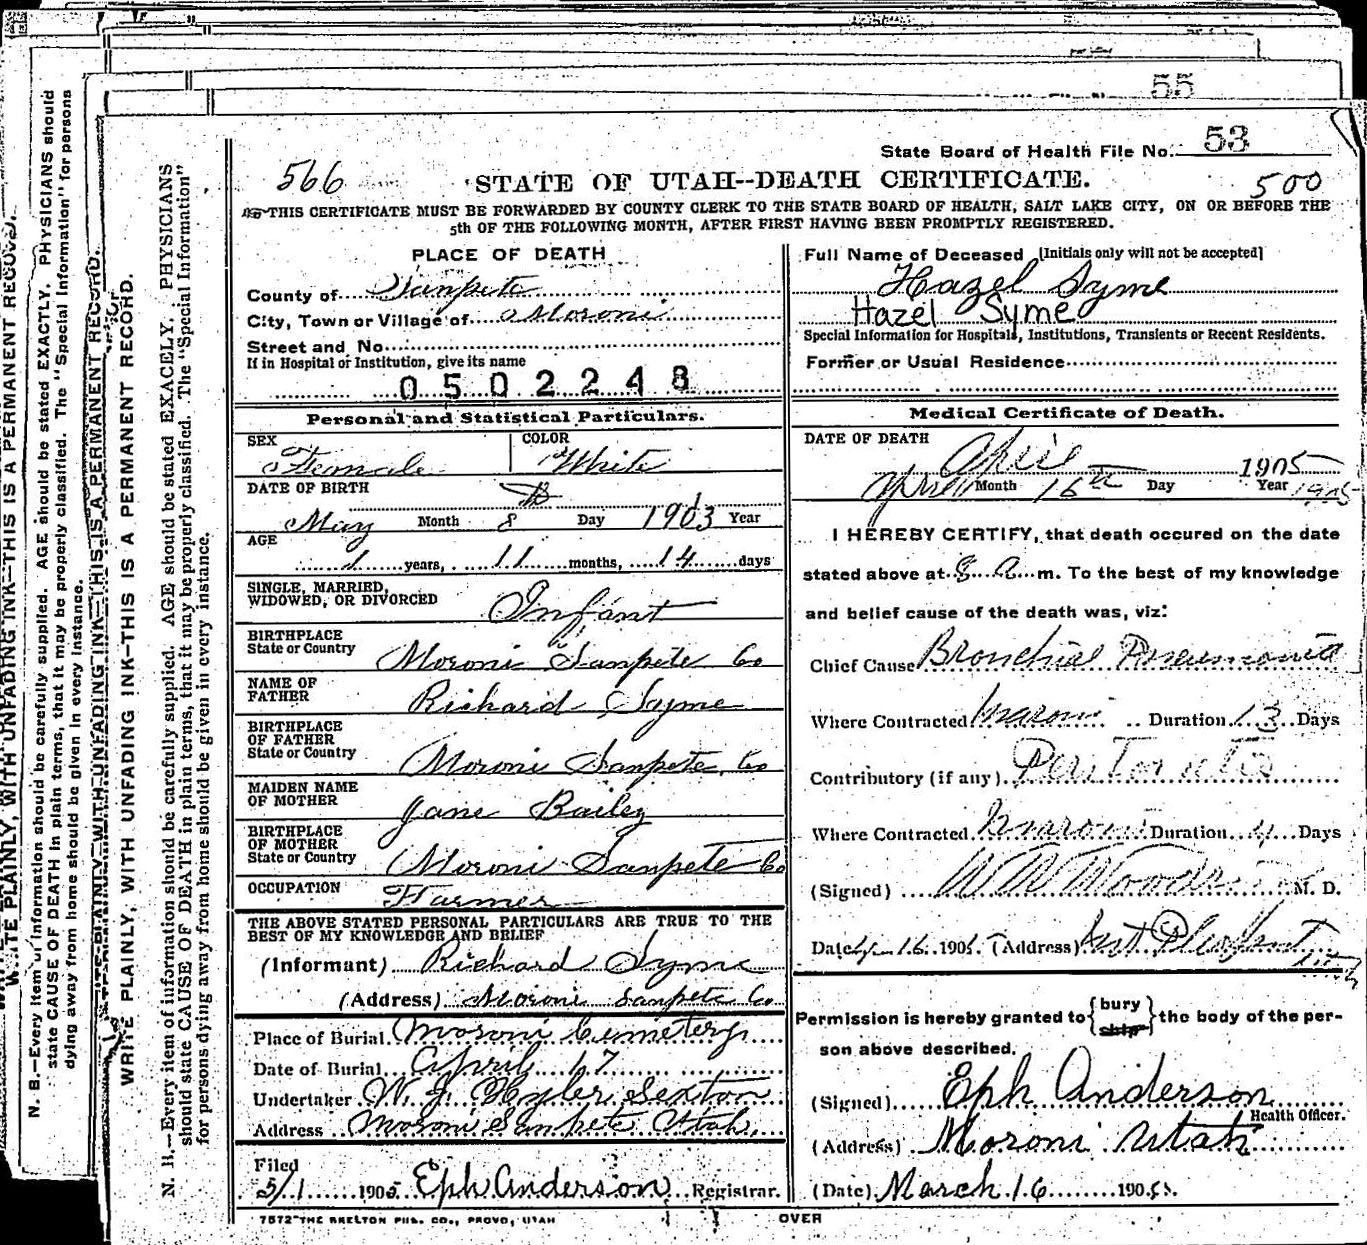 55
State Board of Health File No. 53
566 STATE OF UTAH--DEATH CERTIFICATE. 500
THIS CERTIFICATE MUST BE FORWARDED BY COUNTY CLERK TO THE STATE BOARD OF HEALTH, SALT LAKE CITY, ON OR BEFORE THE
5th OF THE FOLLOWING MONTH, AFTER FIRST HAVING BEEN PROMPTLY REGISTERED.
PLACE OF DEATH
County of Sanpete
City, Town or Village of Moroni
Street and No.
If in Hospital or Institution, give its name
0502248
Personal and Statistical Particulars.
SEX COLOR
Female White
DATE OF BIRTH
May Month 8 Day 1903 Year
AGE
1 years, 11 months, 14 days
SINGLE, MARRIED,
WIDOWED, OR DIVORCED Infant
BIRTHPLACE
State or Country Moroni Sanpete Co
NAME OF
FATHER Richard Syme
BIRTHPLACE
OF FATHER
State or Country Moroni Sanpete Co
MAIDEN NAME
OF MOTHER Jane Bailey
BIRTHPLACE
OF MOTHER
State or Country Moroni Sanpete Co
OCCUPATION Farmer
THE ABOVE STATED PERSONAL PARTICULARS ARE TRUE TO THE
BEST OF MY KNOWLEDGE AND BELIEF
(Informant) Richard Syme
(Address) Moroni Sanpete Co
Place of Burial Moroni Cemetery
Date of Burial April 17
Undertaker W. J. Sexton
Address Moroni Sanpete Utah
Filed
5/1 1905 Eph Anderson Registrar.
7572 THE SKELTON PUB. CO., PROVO, UTAH
Full Name of Deceased [Initials only will not be accepted]
Hazel Syme
Hazel Syme
Special Information for Hospitals, Institutions, Transients or Recent Residents.
Former or Usual Residence
Medical Certificate of Death.
DATE OF DEATH April 1905
April Month 16th Day Year 1905
I HEREBY CERTIFY, that death occured on the date
stated above at 8 A m. To the best of my knowledge
and belief cause of the death was, viz:
Chief Cause Bronchial Pneumonia
Where Contracted Moroni Duration 13 Days
Contributory (if any) Peritonitis
Where Contracted Moroni Duration 4 Days
(Signed) M. D.
Date 16 1905 (Address) Mt Pleasant
Permission is hereby granted to {bury ship} the body of the per-
son above described.
(Signed) Eph Anderson
Health Officer.
(Address) Moroni Utah
(Date) March 16 1905.
OVER
WRITE PLAINLY, WITH UNFADING INK--THIS IS A PERMANENT RECORD.
N. B.--Every item of information should be carefully supplied. AGE should be stated EXACELY. PHYSICIANS
should state CAUSE OF DEATH in plain terms, that it may be properly classified. The "Special Information"
for persons dying away from home should be given in every instance.
WRITE PLAINLY, WITH UNFADING INK--THIS IS A PERMANENT RECORD.
N. B.--Every item of information should be carefully supplied. AGE should be stated EXACTLY. PHYSICIANS should
state CAUSE OF DEATH in plain terms, that it may be properly classified. The "Special Information" for persons
dying away from home should be given in every instance.